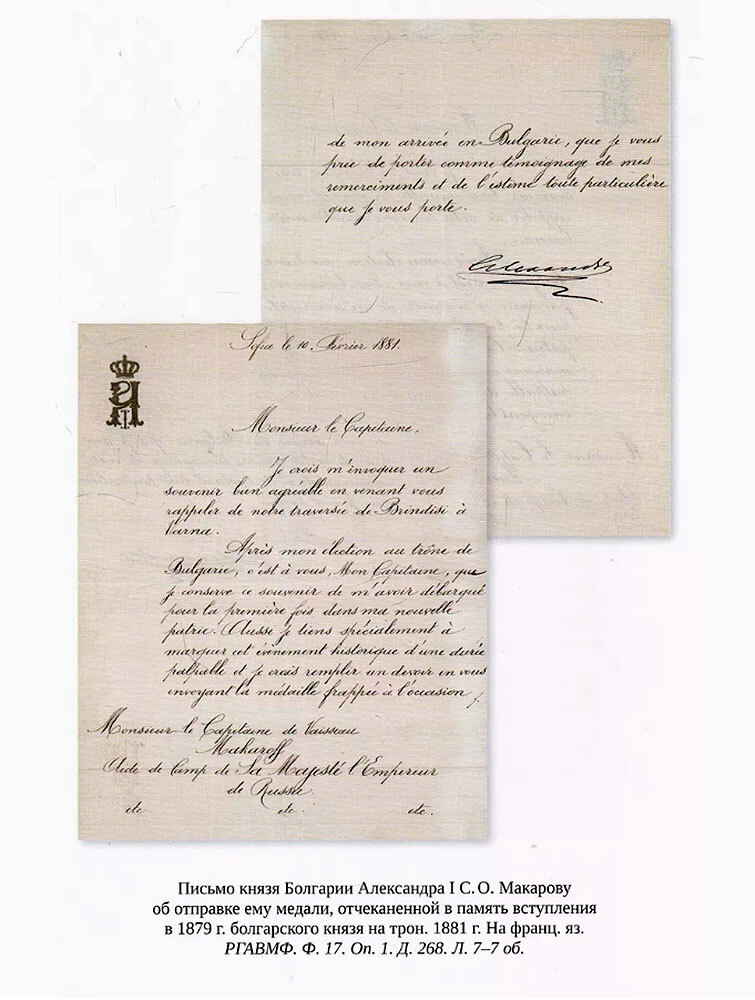 Sofia le 10. Février 1881.
Monsieur le Capitaine,
Je crois m'invoquer un
souvenir bien agréable en venant vous
rappeler de notre traversée de Brindisi à
Varna.
Après mon élection au trône de
Bulgarie, c'est à vous, Mon Capitaine, que
je conserve ce souvenir de m'avoir débarqué
pour la première fois dans ma nouvelle
patrie. Aussi je tiens spécialement à
marquer cet évènement historique d'une durée
palpable et je crois remplir un devoir en vous
envoyant la médaille frappée à l'occasion
Monsieur le Capitaine de Vaisseau
Makaroff
Aide de Camp de Sa Majesté l'Empereur
de Russie.
etc etc. etc.
de mon arrivée en Bulgarie, que je vous
prie de porter comme témoignage de mes
remerciments et de l'estime toute particulière
que je vous porte.
Alexandre
Письмо князя Болгарии Александра I С. О. Макарову
об отправке ему медали, отчеканенной в память вступления
в 1879 г. болгарского князя на трон. 1881 г. На франц. яз.
РГАВМФ. Ф. 17. Оп. 1. Д. 268. Л. 7–7 об.